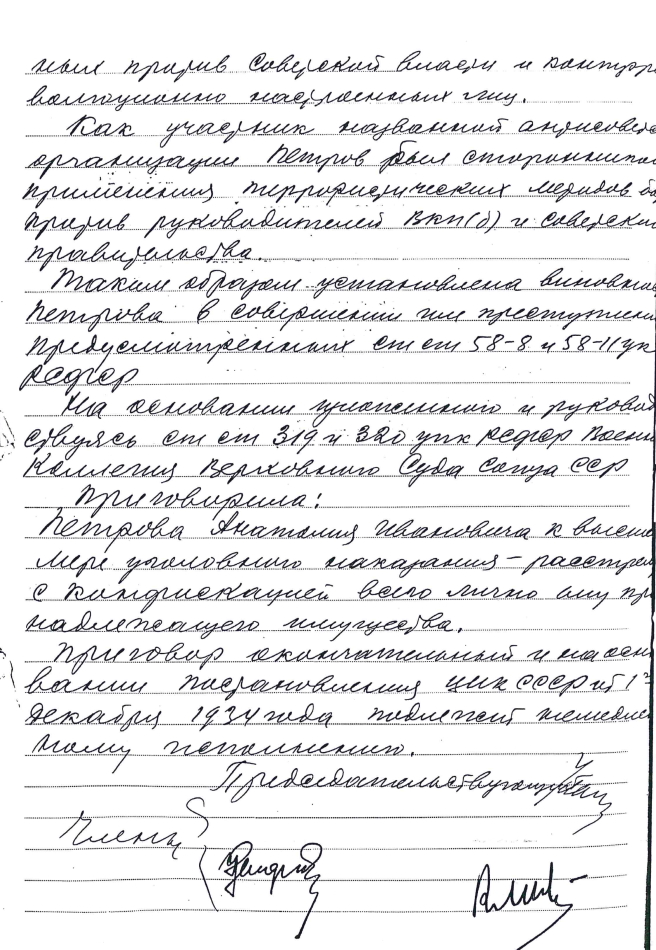 ных против Советской власти и контрре
волюционно настроенных лиц.
Как участник названной антисовет
организации Петров был сторонником
применения террористических методов бо
против руководителей ВКП(б) и советско
правительства.
Таким образом установлена виновнос
Петрова в совершении им преступлени
предусмотренных ст ст 58-8 и 58-11 ук
РСФСР
На основании изложенного и руковод
ствуясь ст ст 319 и 320 упк РСФСР Военн
Коллегия Верховного Суда Союза ССР
Приговорила:
Петрова Анатолия Ивановича к высше
мере уголовного наказания - расстрел
с конфискацией всего лично ему пр
надлежащего имущества.
Приговор окончательный и на осно
вании постановления ЦИК СССР от 1го
декабря 1934 года подлежит немедле
ному исполнению.
Председательствующий
Члены